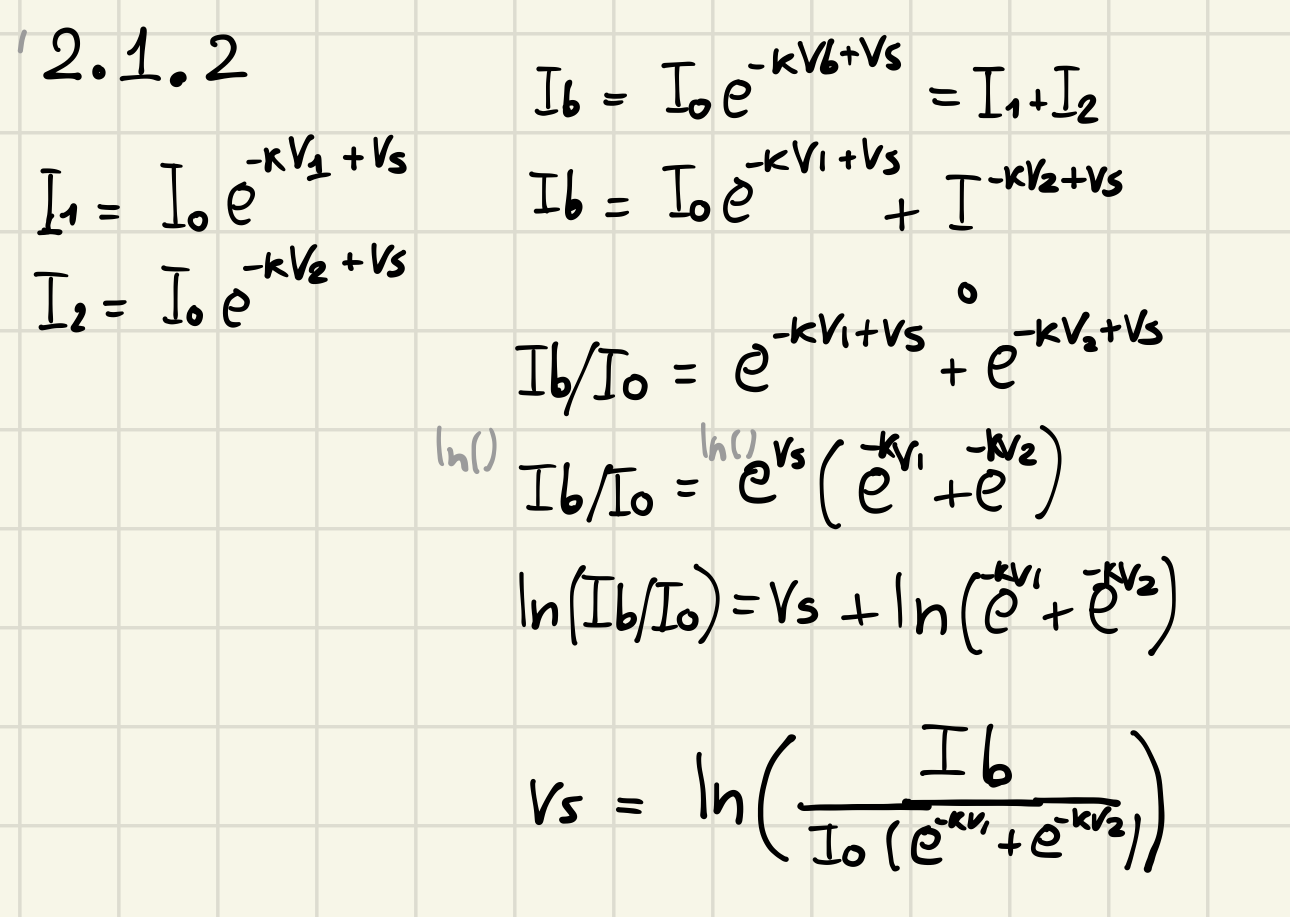 2.1.2
I₁ = I₀ e^(-κV₁ + Vs)
I₂ = I₀ e^(-κV₂ + Vs)
Ib = I₀e^(-κVb+Vs) = I₁+I₂
Ib = I₀e^(-κV₁+Vs) + I^(-κV₂+Vs)
o
Ib/I₀ = e^(-κV₁+Vs) + e^(-κV₂+Vs)
ln() Ib/I₀ = ln() e^(Vs) (e^(-κV₁) + e^(-κV₂))
ln(Ib/I₀) = Vs + ln(e^(-κV₁) + e^(-κV₂))
Vs = ln(Ib / I₀(e^(-κV₁) + e^(-κV₂)))